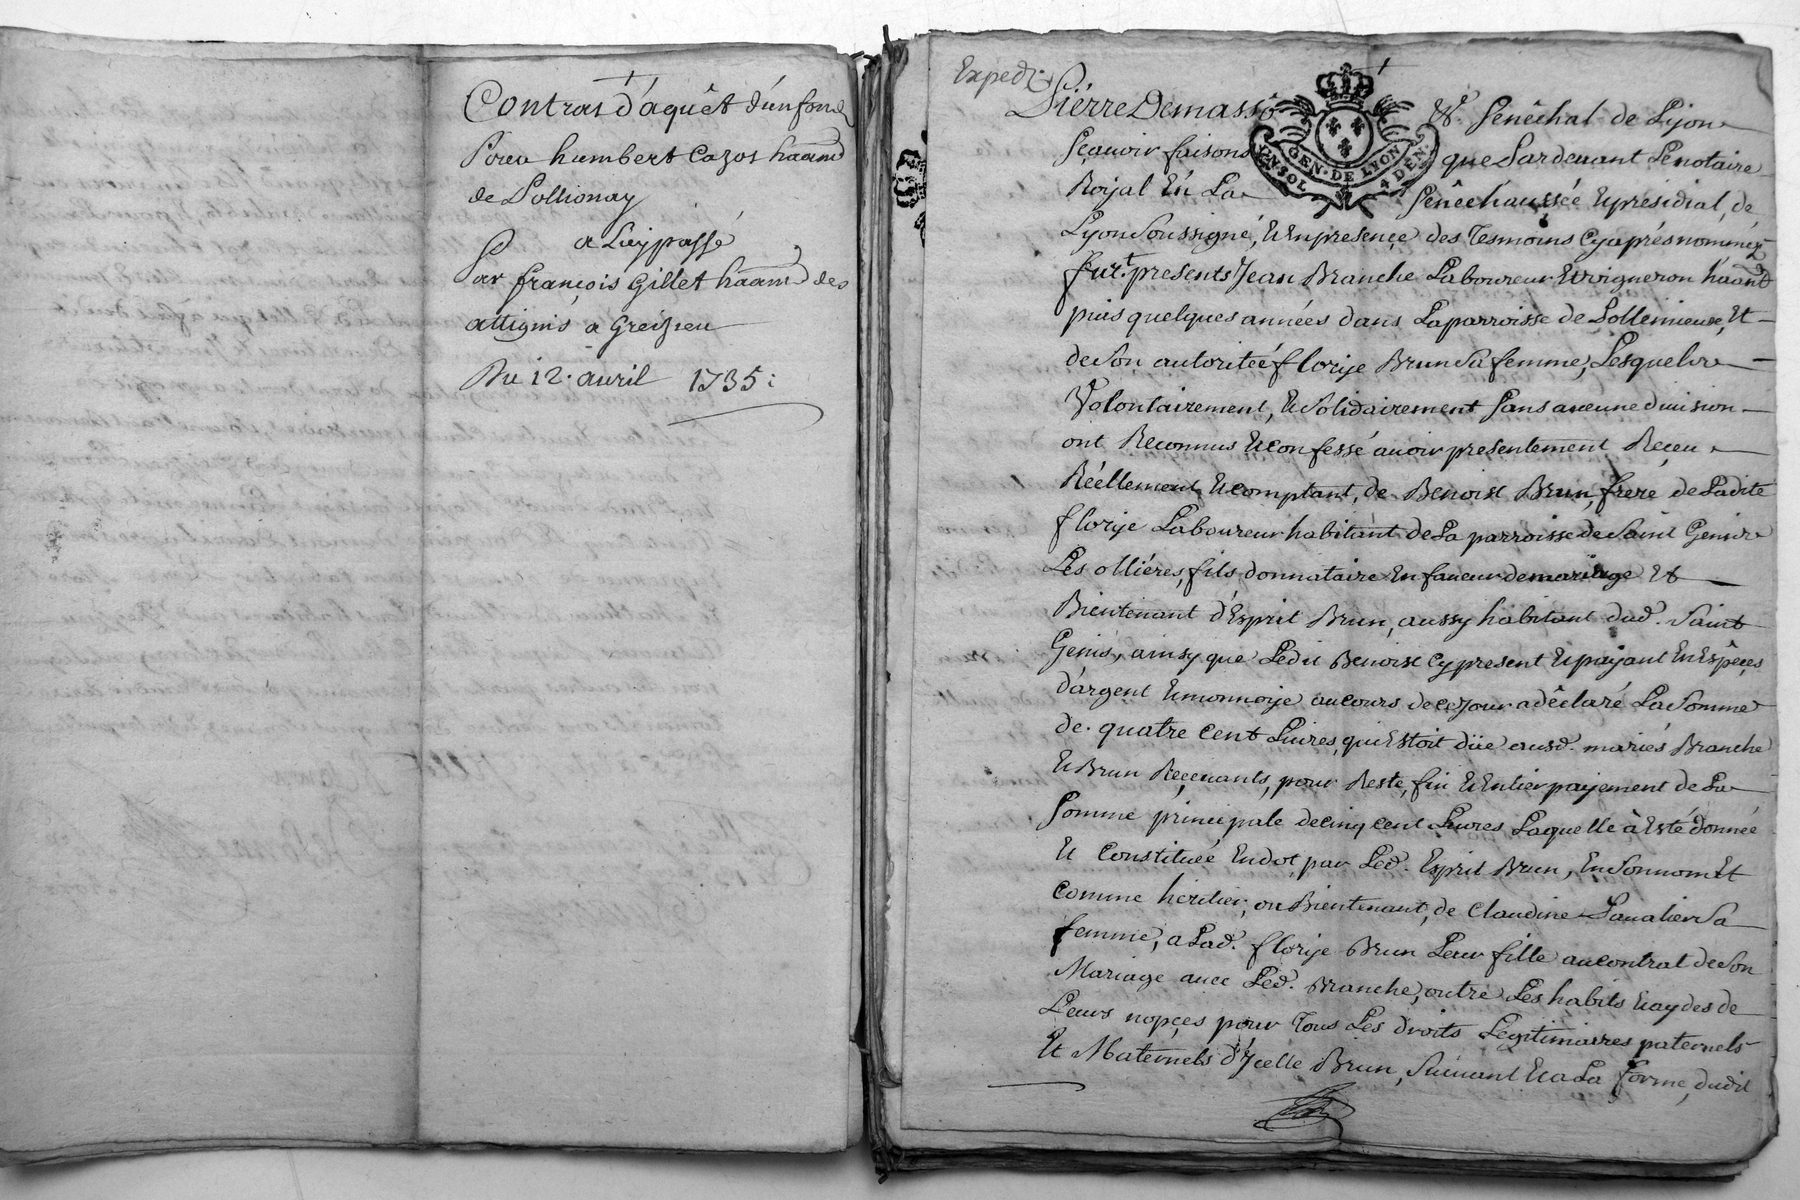 Contrat d'aquêt d'un fond
Pour humbert Cazot haând
de Pollionay
a Luy passé
Par françois Gillet haând des
attignis a Greizieu
Du 12. avril 1735:
Expedi.
Pierre Demasso & Senêchal de Lyon
Sçauoir faisons que Pardeuant Le notaire
GEN. DE LYON
UN. SOL 4 DEN.
Royal En La Senêchaussée & presidial, de
Lyon Soussigné, & En presence des Tesmoins Cyaprés nommez
fur.t presents Jean Branche Laboureur & vigneron haânt
puis quelques années dans La parroisse de Pollemieux, Et
de Son autoritée florije Brun Sa femme, Lesquels
Volontairement, & Solidairement Sans aucune diuision
ont Reconnus & confessé auoir presentement Reçeu
Réêllement & comptant, de Benoist Brun, frere de Ladite
florije Laboureur habitant de La parroisse de Saint Genis
Les olliéres, fils donnataire En faueur de mariage Et
Bientenant d'Esprit Brun, aussy habitant dud. Saint
Genis, ainsy que Ledit Benoist Cy present & payant En Espêces
d'argent & monnoije au cours de ce Jour a dêclaré La Somme
de quatre Cent Liures, qui Estoit düe ausd. mariés Branche
& Brun Reçeuants, pour Reste, fin & Entier payement de La
Somme principale de cinq cent Liures Laquelle à Esté donnée
Et Constituée En dot, par Led. Esprit Brun, En Son nom Et
Comme heritier, ou Bientenant, de Claudine Sa
femme, a Lad. florije Brun Leur fille au contrat de Son
Mariage auec Led. Branche, outre Les habits & aydes de
Leurs nopçes pour Tous Les droits Legitimaires paternels
Et Maternels d'Jcelle Brun, Suiuant & a La forme, dudit